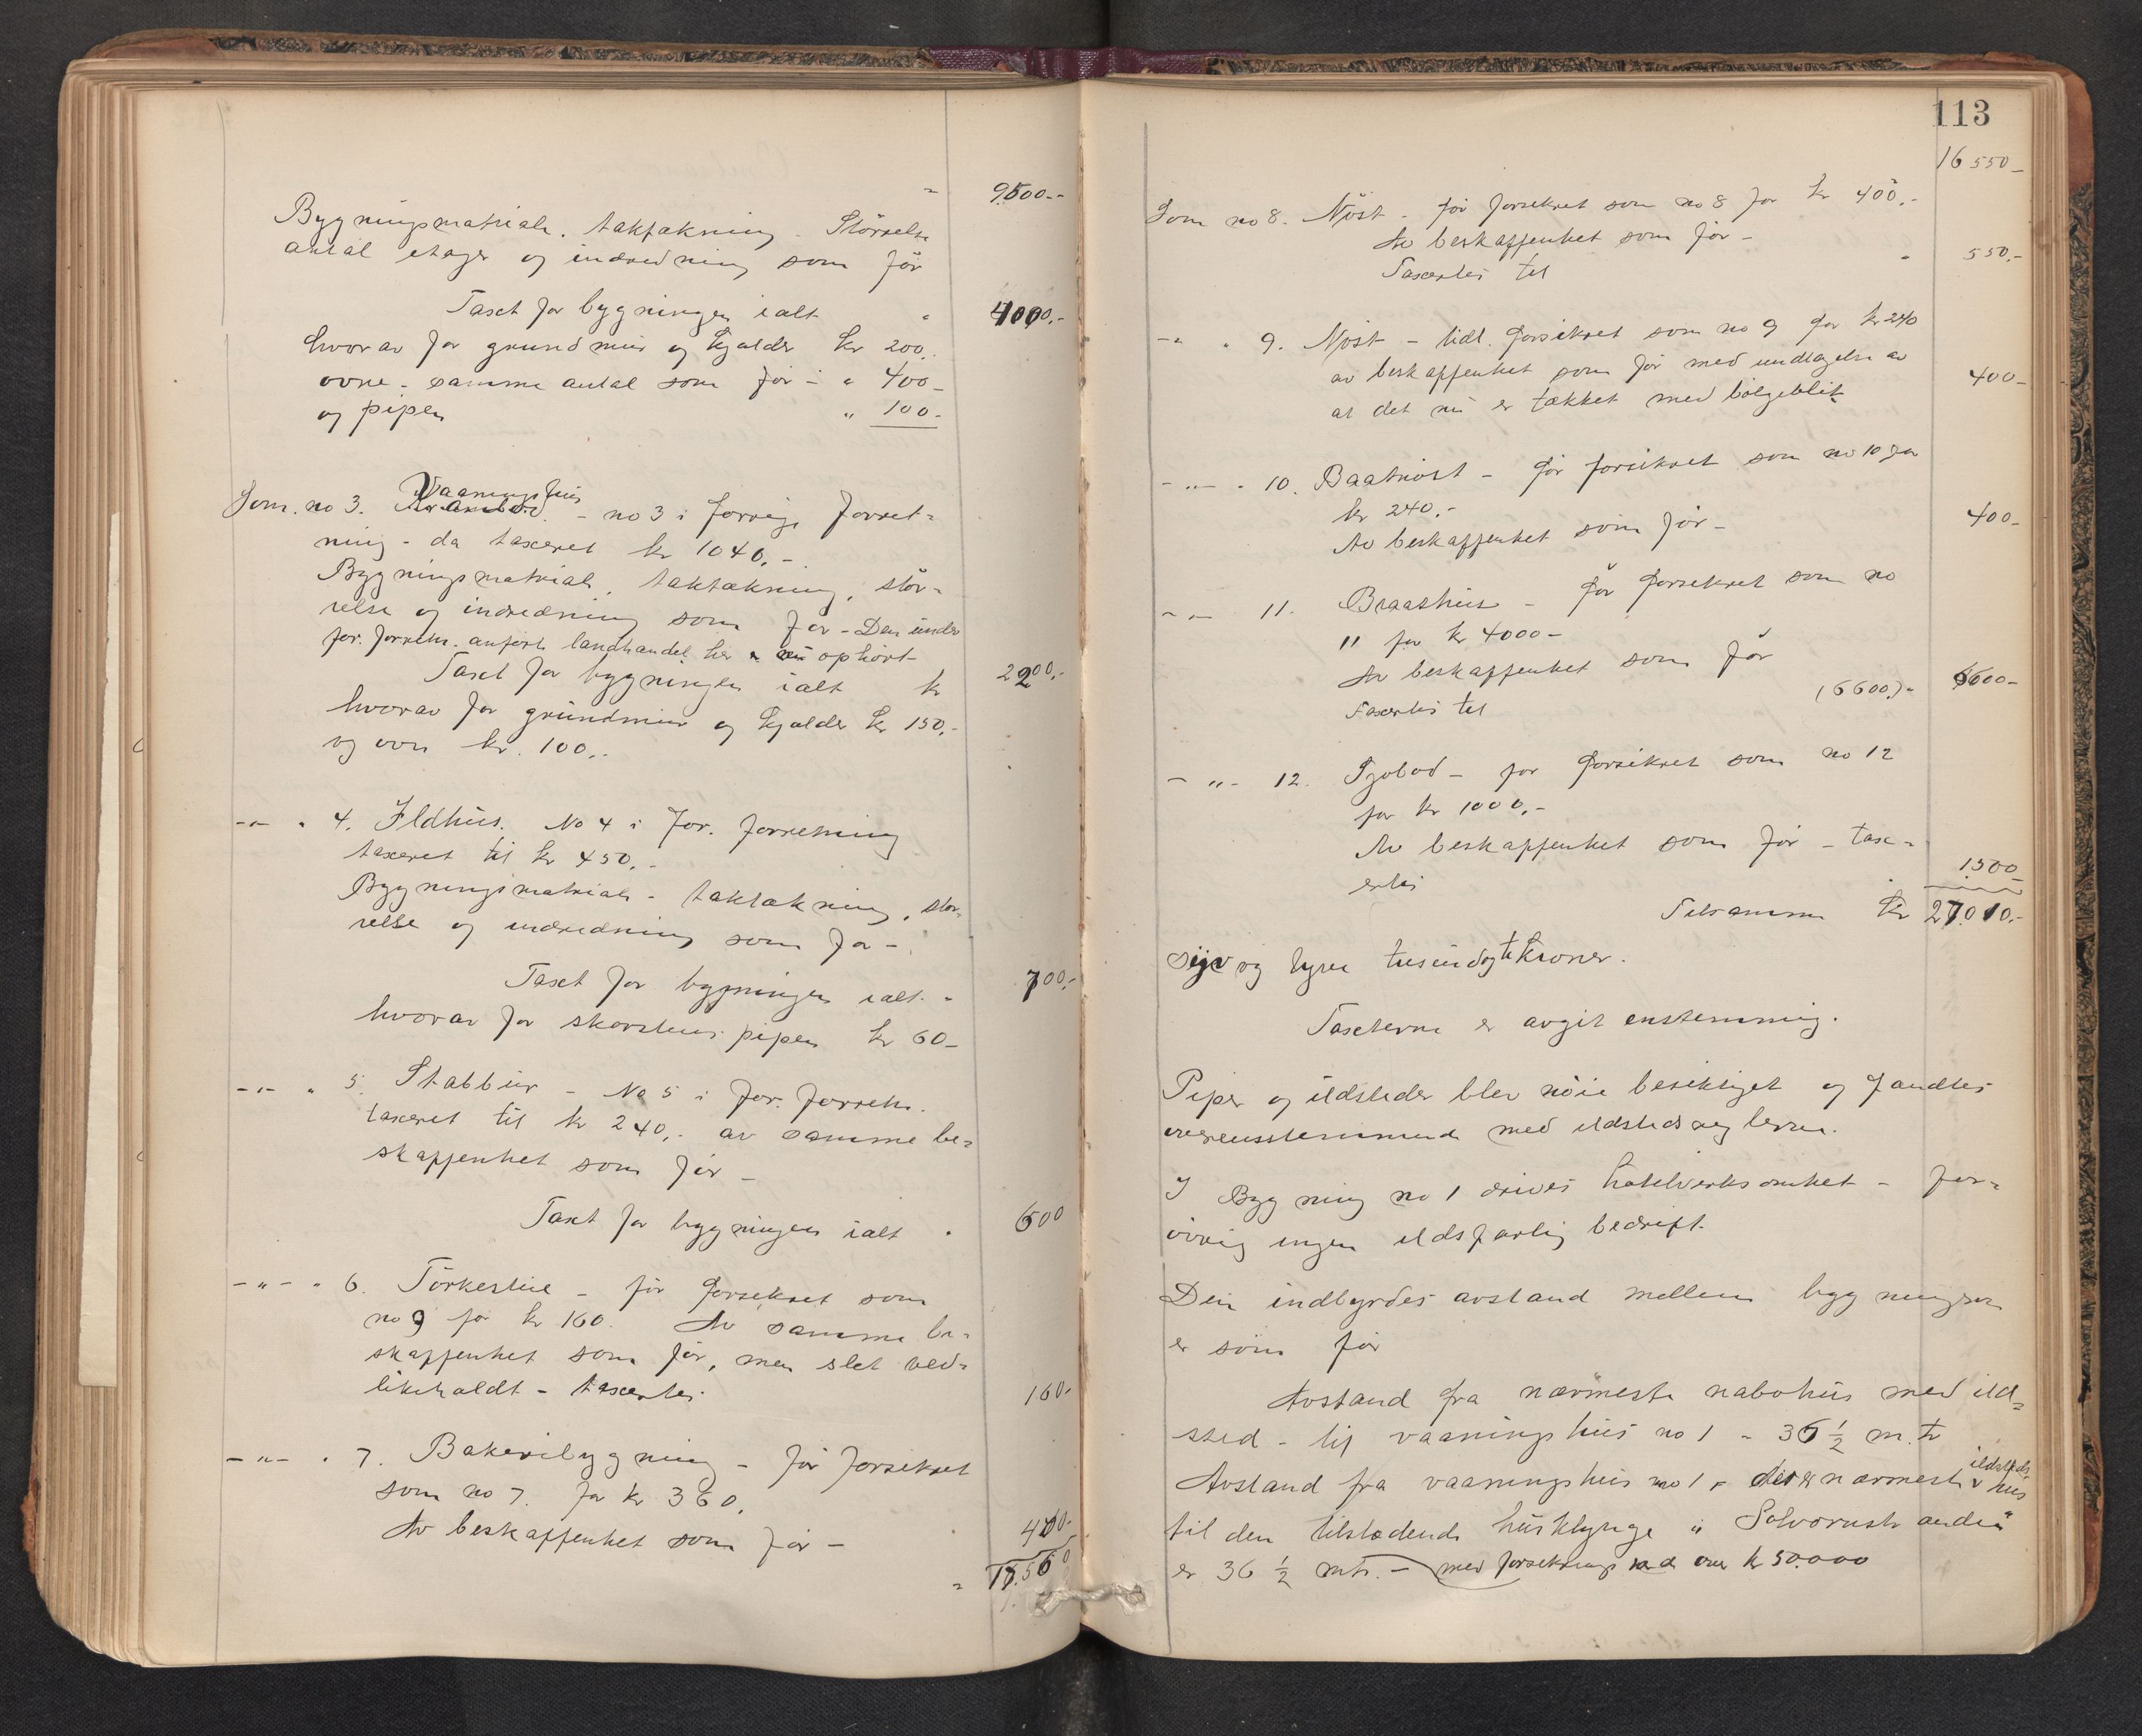 9500.--
Bygningsmateriale. taktækning. Störrelse
antal etager og indredning som för
Taxt for bygningen ialt " 4100.-
hvorav for grundmur og kjælder kr 200.-
ovne - samme antal som för - " 400-
og pipen " 100.-
Som. no 3. Vaaningshus - no 3 i forrige forret=
ning - da taxeret kr 1040.-
Bygningsmateriale, taktækning, stör=
relse og indredning som för - Den under
for. forretn. anförte landhandel her er nu ophört
Taxt for bygningen ialt kr 2200.-
hvorav for grundmur og kjælder kr 150.-
og ovn kr. 100.-
-"- " 4. Ildhus. No 4 i for. forretning
taxeret til kr 450.-
Bygningsmateriale - taktækning, stör=
relse og indredning som för -
Taxt for bygningen ialt. " 700.-
hvorav for skorstenspipen kr 60-
-"- " 5. Stabbur - No 5 i for. forretn.
taxeret til kr 240.- av samme be=
skaffenhet som för -
Taxt for bygningen ialt " 600
-"- " 6. Törkestue - för forsikret som
no 9 for kr 160. Av samme be=
skaffenhet som för, men slet ved=
likeholdt - taxertes 160.-
-"- " 7. Bakeribygning - för forsikret
som no 7. for kr 360.
Av beskaffenhet som för - 400.-
113
16550-
Som no 8. Nöst - för forsikret som no 8 for kr 400.-
Av beskaffenhet som för -
Taxertes til " 550.-
-"- " 9. Nöst - tidl. forsikret som no 9 for kr 240
av beskaffenhet som för med undtagelse av
at det nu er tækket med bölgeblik 400-
-"- " 10. Baatnöst - för forsikret som no 10 for
kr 240.-
Av beskaffenhet som för - 400-
-"- 11. - för forsikret som no
11 for kr 4000-
Av beskaffenhet som för
Taxertes til (6600.)- 6600-
-"- 12. Sjobod - för forsikret som no 12
for kr 1000.-
Av beskaffenhet som för - tax=
ertes 1500
Tilsammen kr 27010.-
syv og tyve tusind og ti kroner.
Taxterne er avgit enstemmig.
Piper og ildsteder blev nöie besiktiget og fandtes
overensstemmende med ildstedsreglerne.
I Bygning no 1 drives hotelvirksomhet - for=
övrig ingen ildsfarlig bedrift.
Den indbyrdes avstand mellem bygningene
er som för
Avstand fra nærmeste nabohus med ild=
sted - til vaaningshus no 1 - 36 ½ m.tr
Avstand fra vaaningshus no 1, det er nærmeste ildsteds-
hus
til den tilstödende husklynge "Solvornstranden"
er 36 ½ mtr. - med forsikringsværdi over kr 50.000